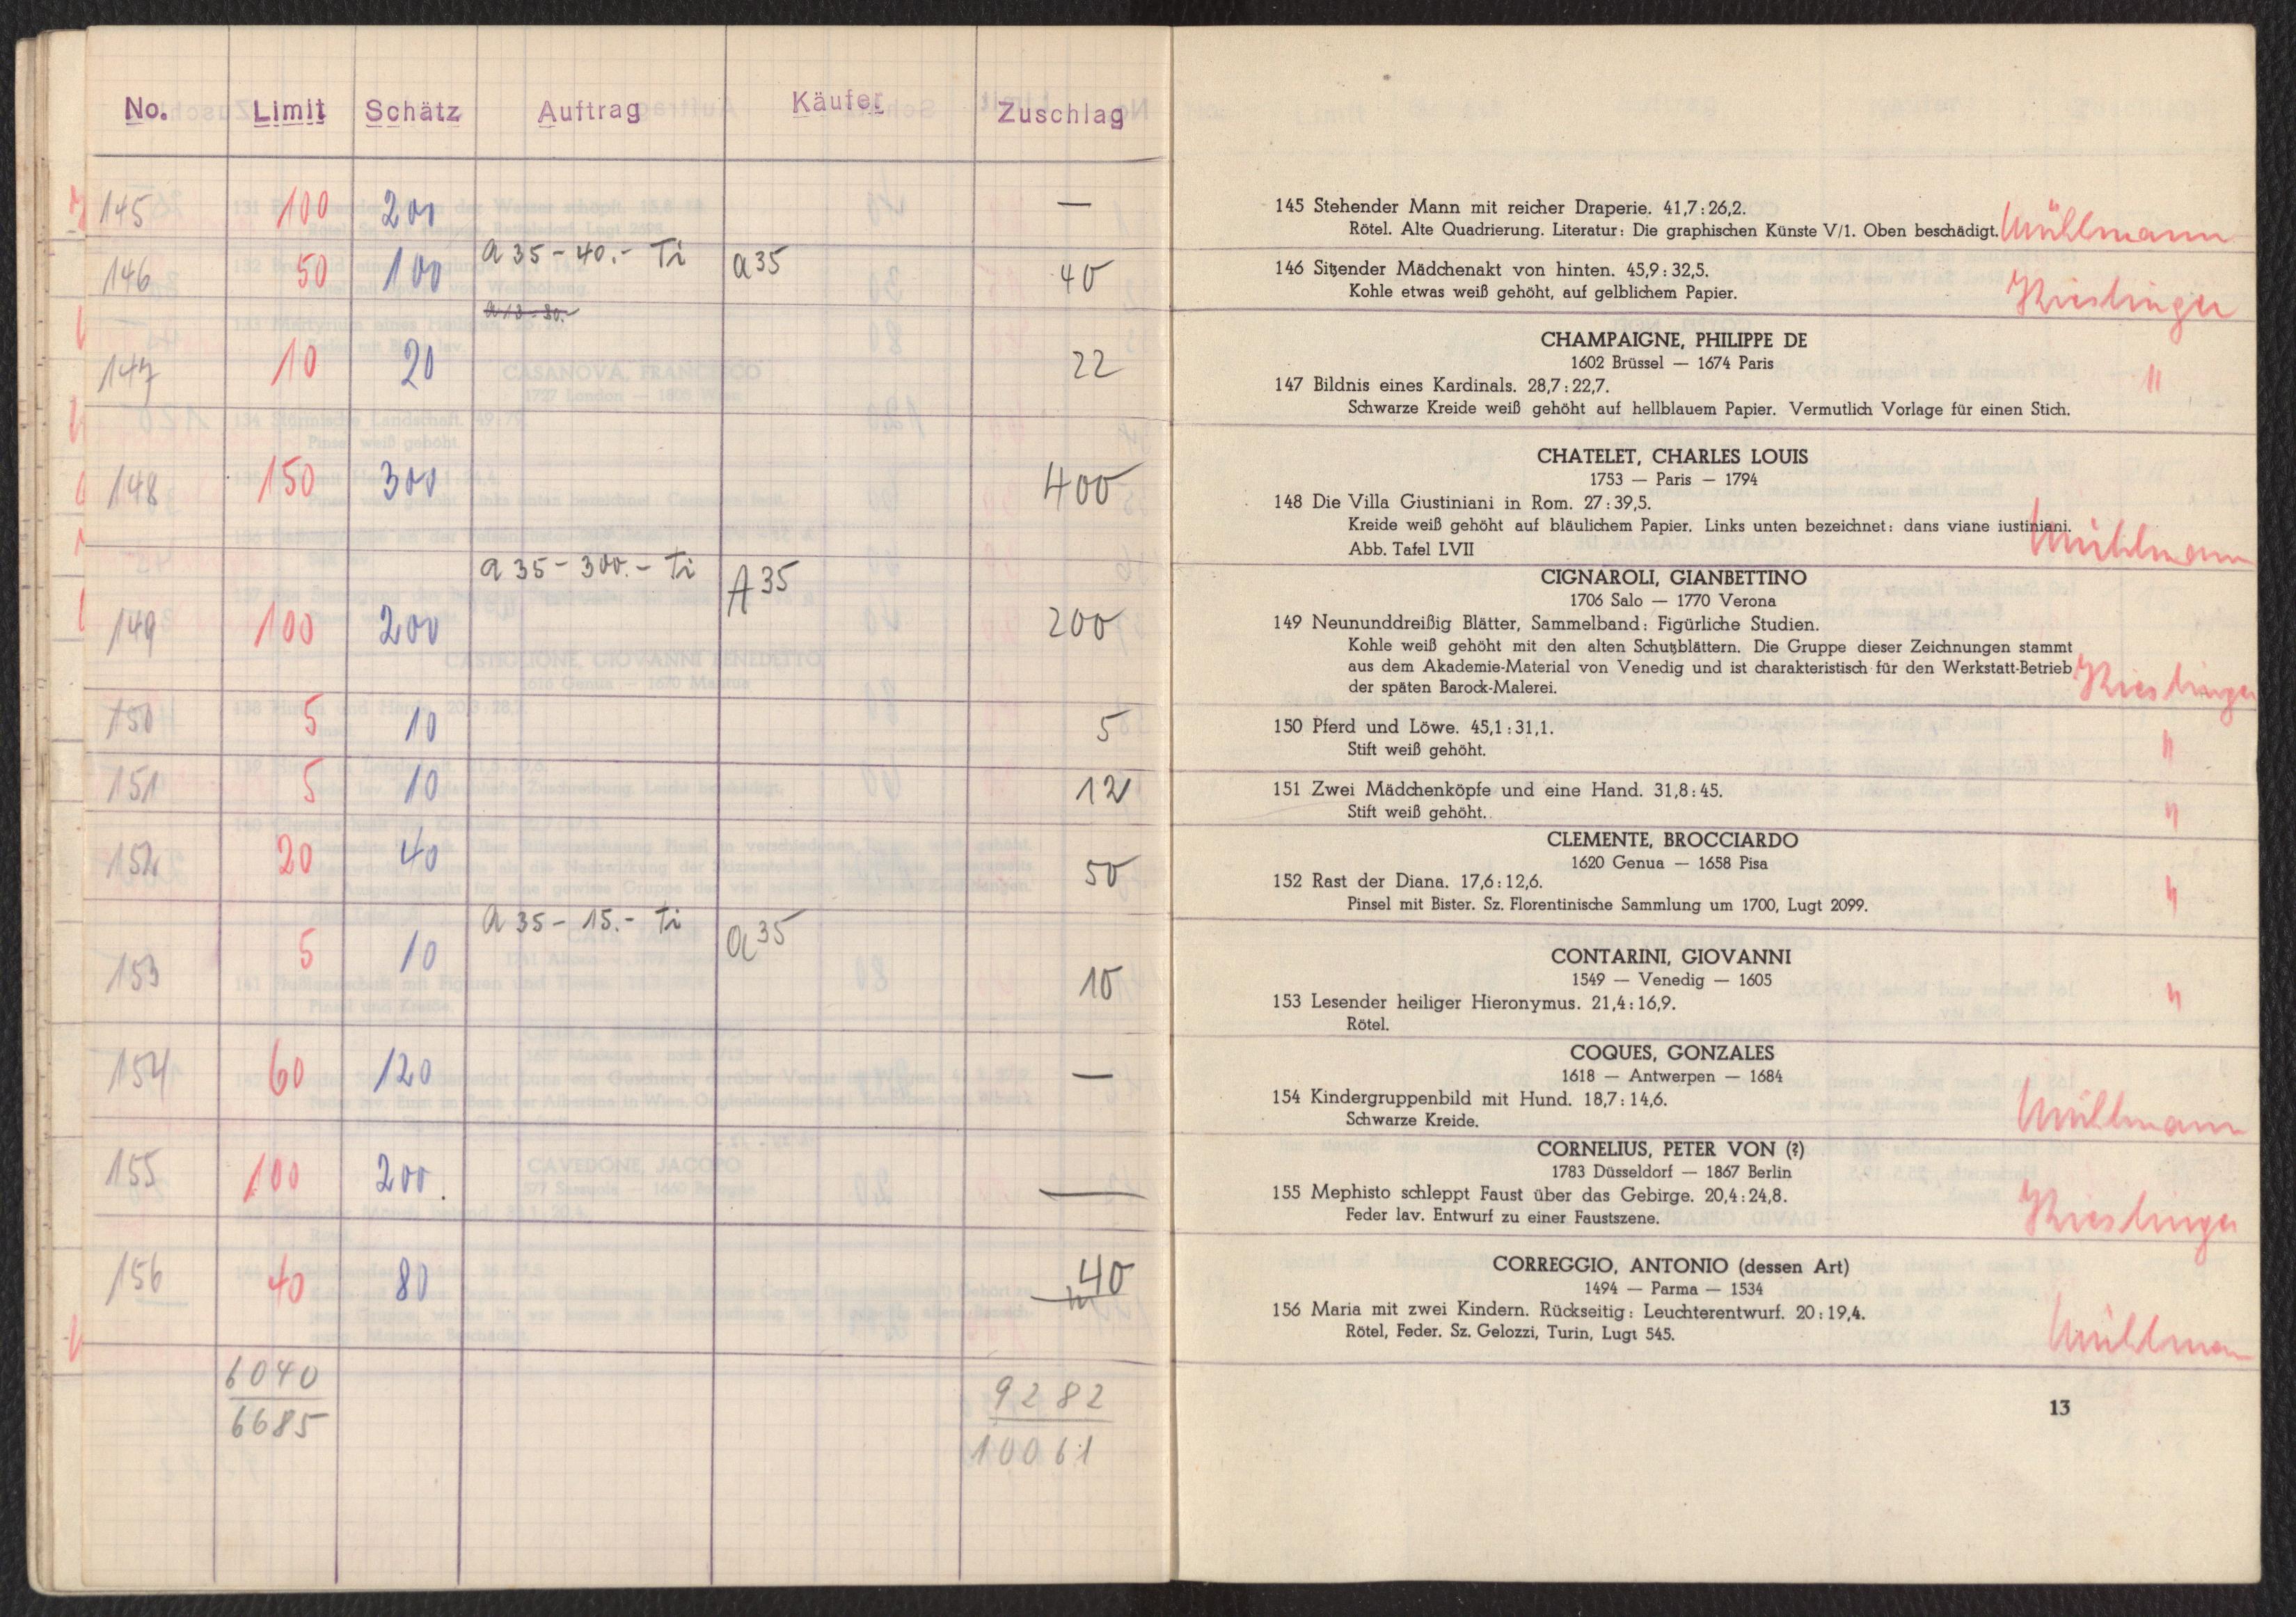 No. Limit Schätz Auftrag Käufer Zuschlag
145 100 200 —
146 50 100 a 35 – 40.- Ti a 35 40
147 10 20 22
148 150 300 400
149 100 200 a 35 – 300.- Ti A 35 200
150 5 10 5
151 5 10 12
152 20 40 50
153 5 10 a 35 – 15.- Ti a 35 10
154 60 120 —
155 100 200 —
156 40 80 40
6040 9282
6685 10061
145 Stehender Mann mit reicher Draperie. 41,7 : 26,2.
Rötel. Alte Quadrierung. Literatur: Die graphischen Künste V/1. Oben beschädigt. Mühlmann
146 Sitzender Mädchenakt von hinten. 45,9 : 32,5.
Kohle etwas weiß gehöht, auf gelblichem Papier. Kieslinger
CHAMPAIGNE, PHILIPPE DE
1602 Brüssel — 1674 Paris
147 Bildnis eines Kardinals. 28,7 : 22,7. "
Schwarze Kreide weiß gehöht auf hellblauem Papier. Vermutlich Vorlage für einen Stich.
CHATELET, CHARLES LOUIS
1753 — Paris — 1794
148 Die Villa Giustiniani in Rom. 27 : 39,5.
Kreide weiß gehöht auf bläulichem Papier. Links unten bezeichnet: dans viane iustiniani.
Abb. Tafel LVII Mühlmann
CIGNAROLI, GIANBETTINO
1706 Salo — 1770 Verona
149 Neununddreißig Blätter, Sammelband: Figürliche Studien.
Kohle weiß gehöht mit den alten Schutzblättern. Die Gruppe dieser Zeichnungen stammt
aus dem Akademie-Material von Venedig und ist charakteristisch für den Werkstatt-Betrieb
der späten Barock-Malerei. Kieslinger
150 Pferd und Löwe. 45,1 : 31,1.
Stift weiß gehöht. "
151 Zwei Mädchenköpfe und eine Hand. 31,8 : 45.
Stift weiß gehöht. "
CLEMENTE, BROCCIARDO
1620 Genua — 1658 Pisa
152 Rast der Diana. 17,6 : 12,6. "
Pinsel mit Bister. Sz. Florentinische Sammlung um 1700, Lugt 2099.
CONTARINI, GIOVANNI
1549 — Venedig — 1605
153 Lesender heiliger Hieronymus. 21,4 : 16,9. "
Rötel.
COQUES, GONZALES
1618 — Antwerpen — 1684
154 Kindergruppenbild mit Hund. 18,7 : 14,6.
Schwarze Kreide. Mühlmann
CORNELIUS, PETER VON (?)
1783 Düsseldorf — 1867 Berlin
155 Mephisto schleppt Faust über das Gebirge. 20,4 : 24,8.
Feder lav. Entwurf zu einer Faustszene. Kieslinger
CORREGGIO, ANTONIO (dessen Art)
1494 — Parma — 1534
156 Maria mit zwei Kindern. Rückseitig: Leuchterentwurf. 20 : 19,4.
Rötel, Feder. Sz. Gelozzi, Turin, Lugt 545. Mühlmann
13